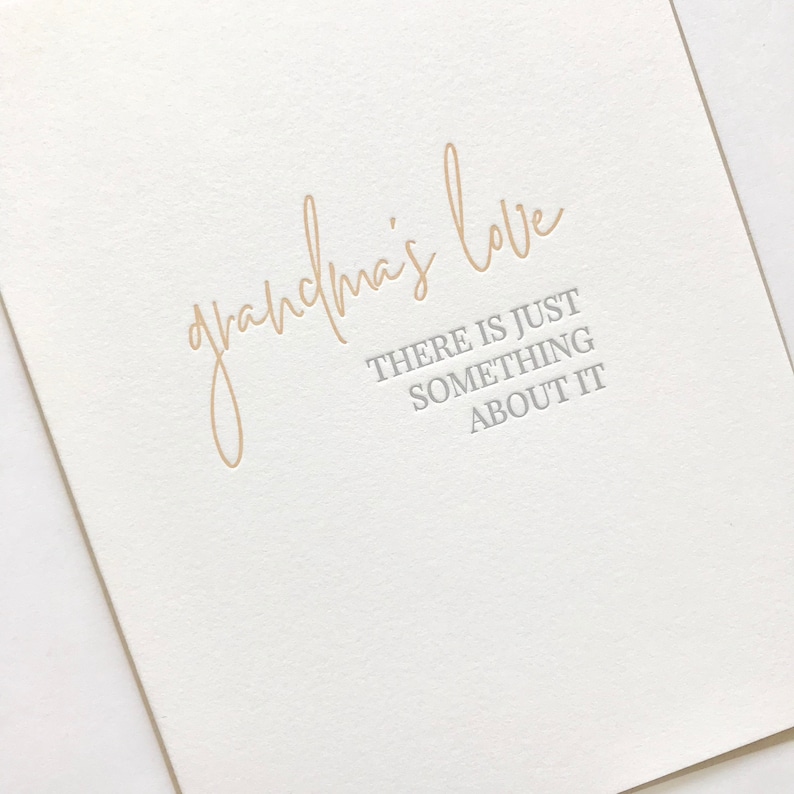 grandma's love
THERE IS JUST
SOMETHING
ABOUT IT